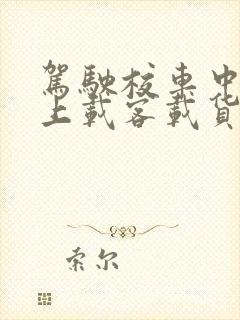 駕駛校車中
上載客載貨
索尔